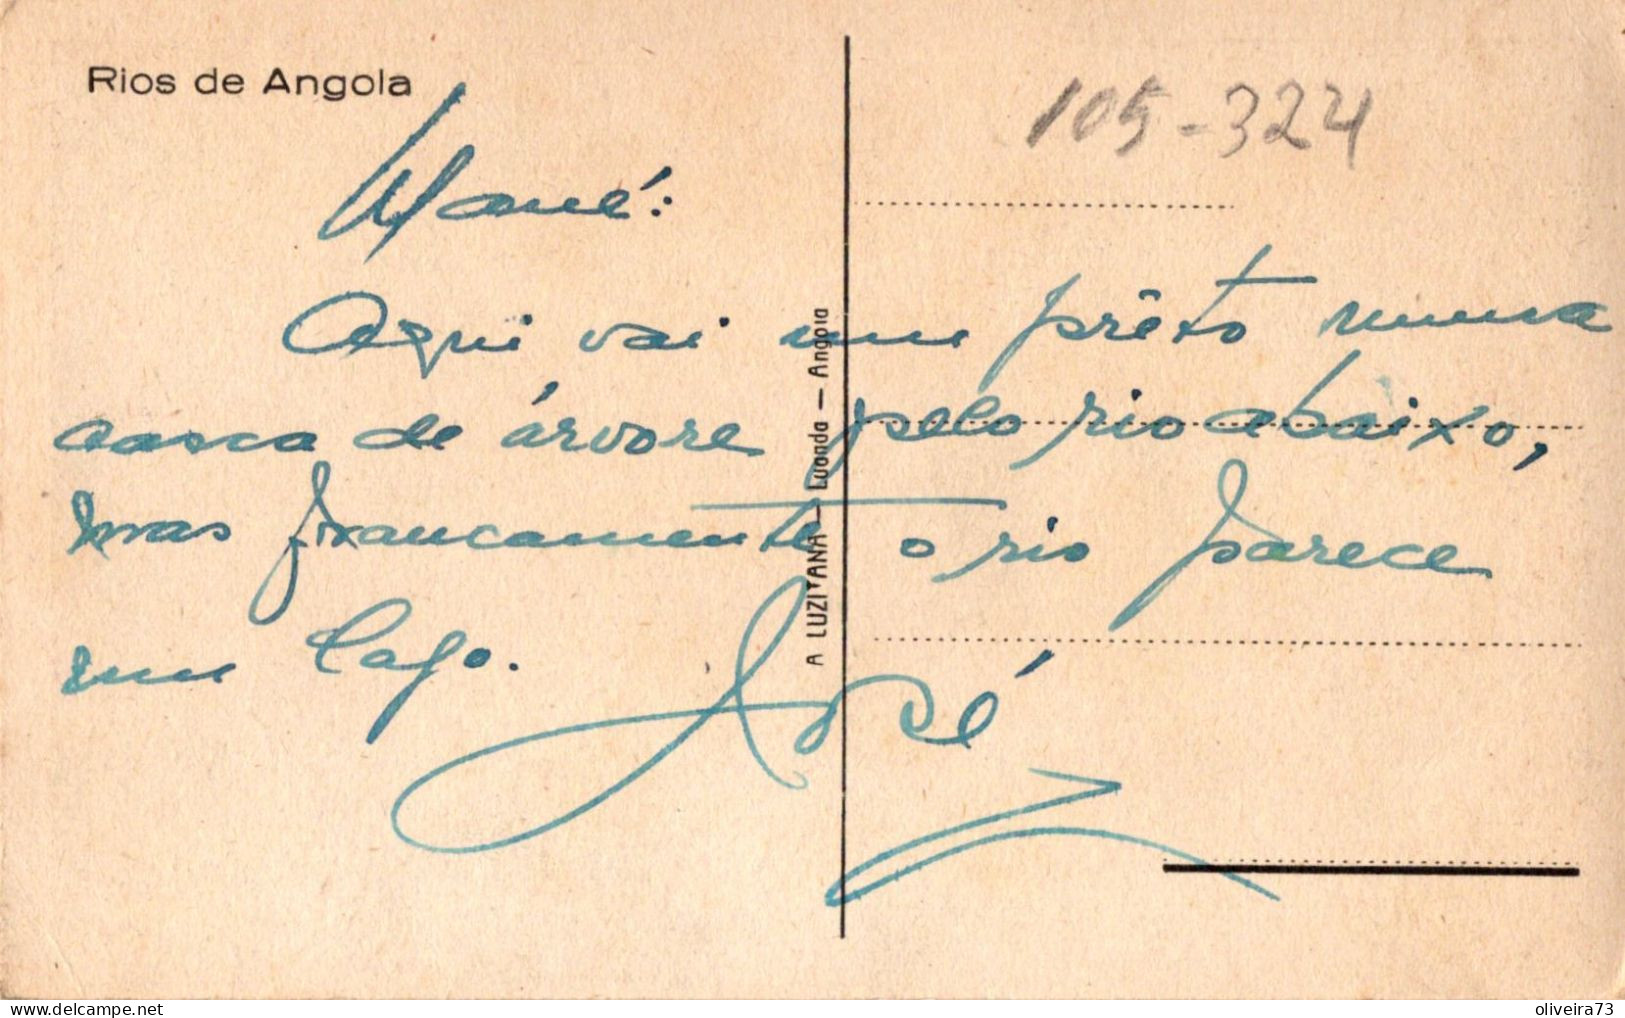 Rios de Angola
105-324
Mané:
Aqui vai um prêto numa
casca de árvore pelo rio abaixo,
mas francamente o rio parece
um lago.
José
A LUZITANA — Luanda — Angola
delcampe.net
oliveira73